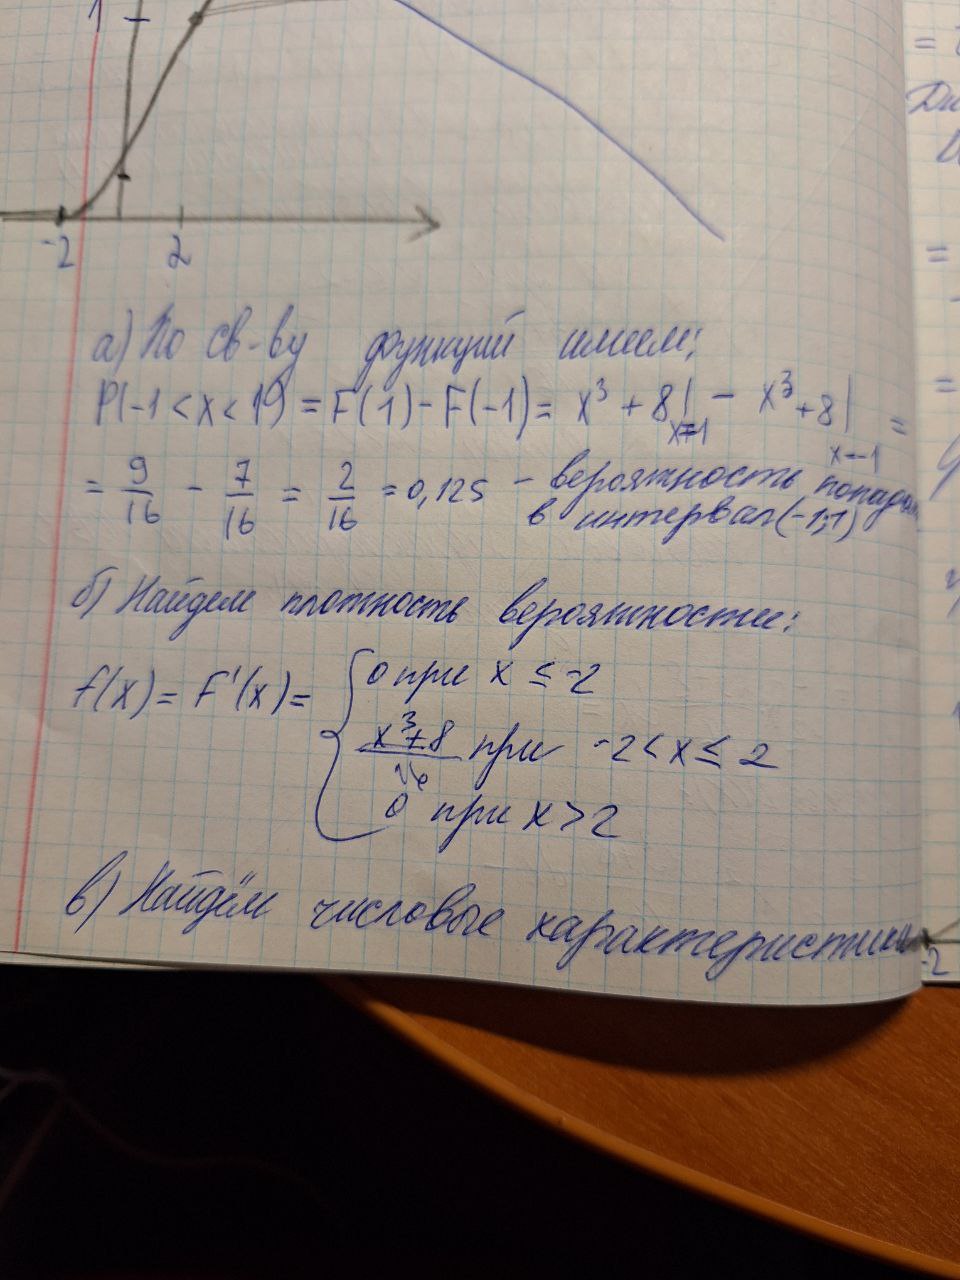 1
-2 2
а) По св-ву функций имеем:
P(-1 < x < 1) = F(1) - F(-1) = x³ + 8|x=1 - x³ + 8|x=-1 =
= 9/16 - 7/16 = 2/16 = 0,125 - вероятность
в интервал (-1;1)
б) Найдем плотность вероятности:
f(x) = F'(x) = { 0 при x ≤ -2
x³+8/16 при -2 < x ≤ 2
0 при x > 2
в) Найдём числовые характеристики
-2